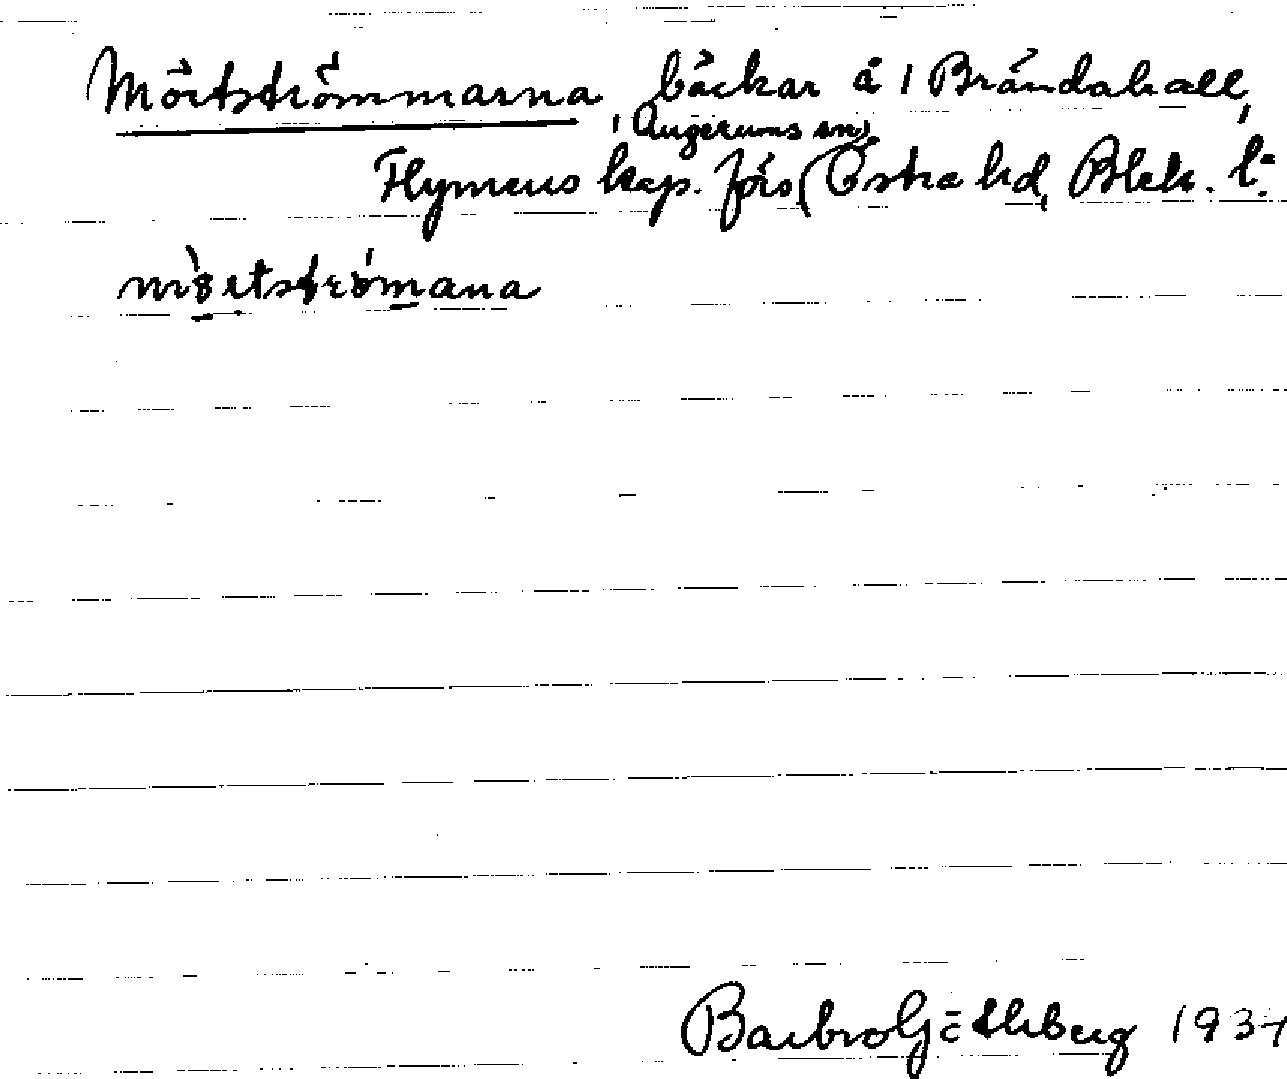 Mörtströmmarna, bäckar å i Brändahall,
i Augerums sn,
Flymens kap. förs( Östra hd, Blek. l:
mörtströmana
Barbro Göthberg 1934